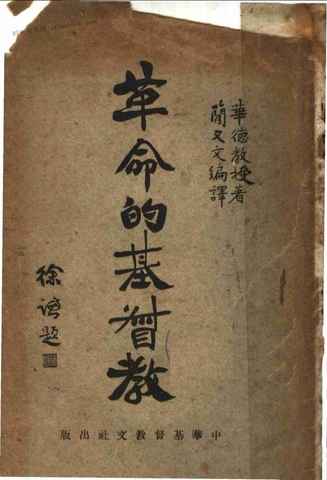 華德教授著
簡又文編譯
革命的基督教
徐謙題
中華基督教文社出版